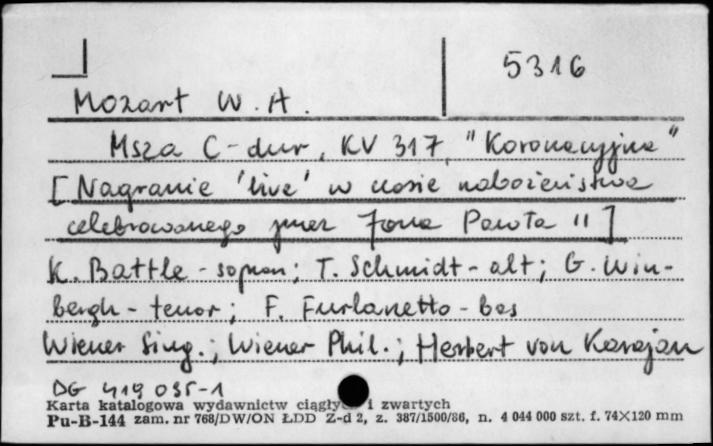 5316
Mozart W. A.
Msza C-dur, KV 317, "Koronacyjna"
[Nagranie 'live' w czasie nabożeństwa
celebrowanego przez Jana Pawła II]
K. Battle - sopran; T. Schmidt - alt; G. Win-
bergh - tenor; F. Furlanetto - bas
Wiener Sing.; Wiener Phil.; Herbert von Karajan
DG 419 095-1
Karta katalogowa wydawnictw ciągłych i zwartych
Pu-B-144 zam. nr 768/DW/ON ŁDD Z-d 2, z. 387/1500/86, n. 4 044 000 szt. f. 74×120 mm